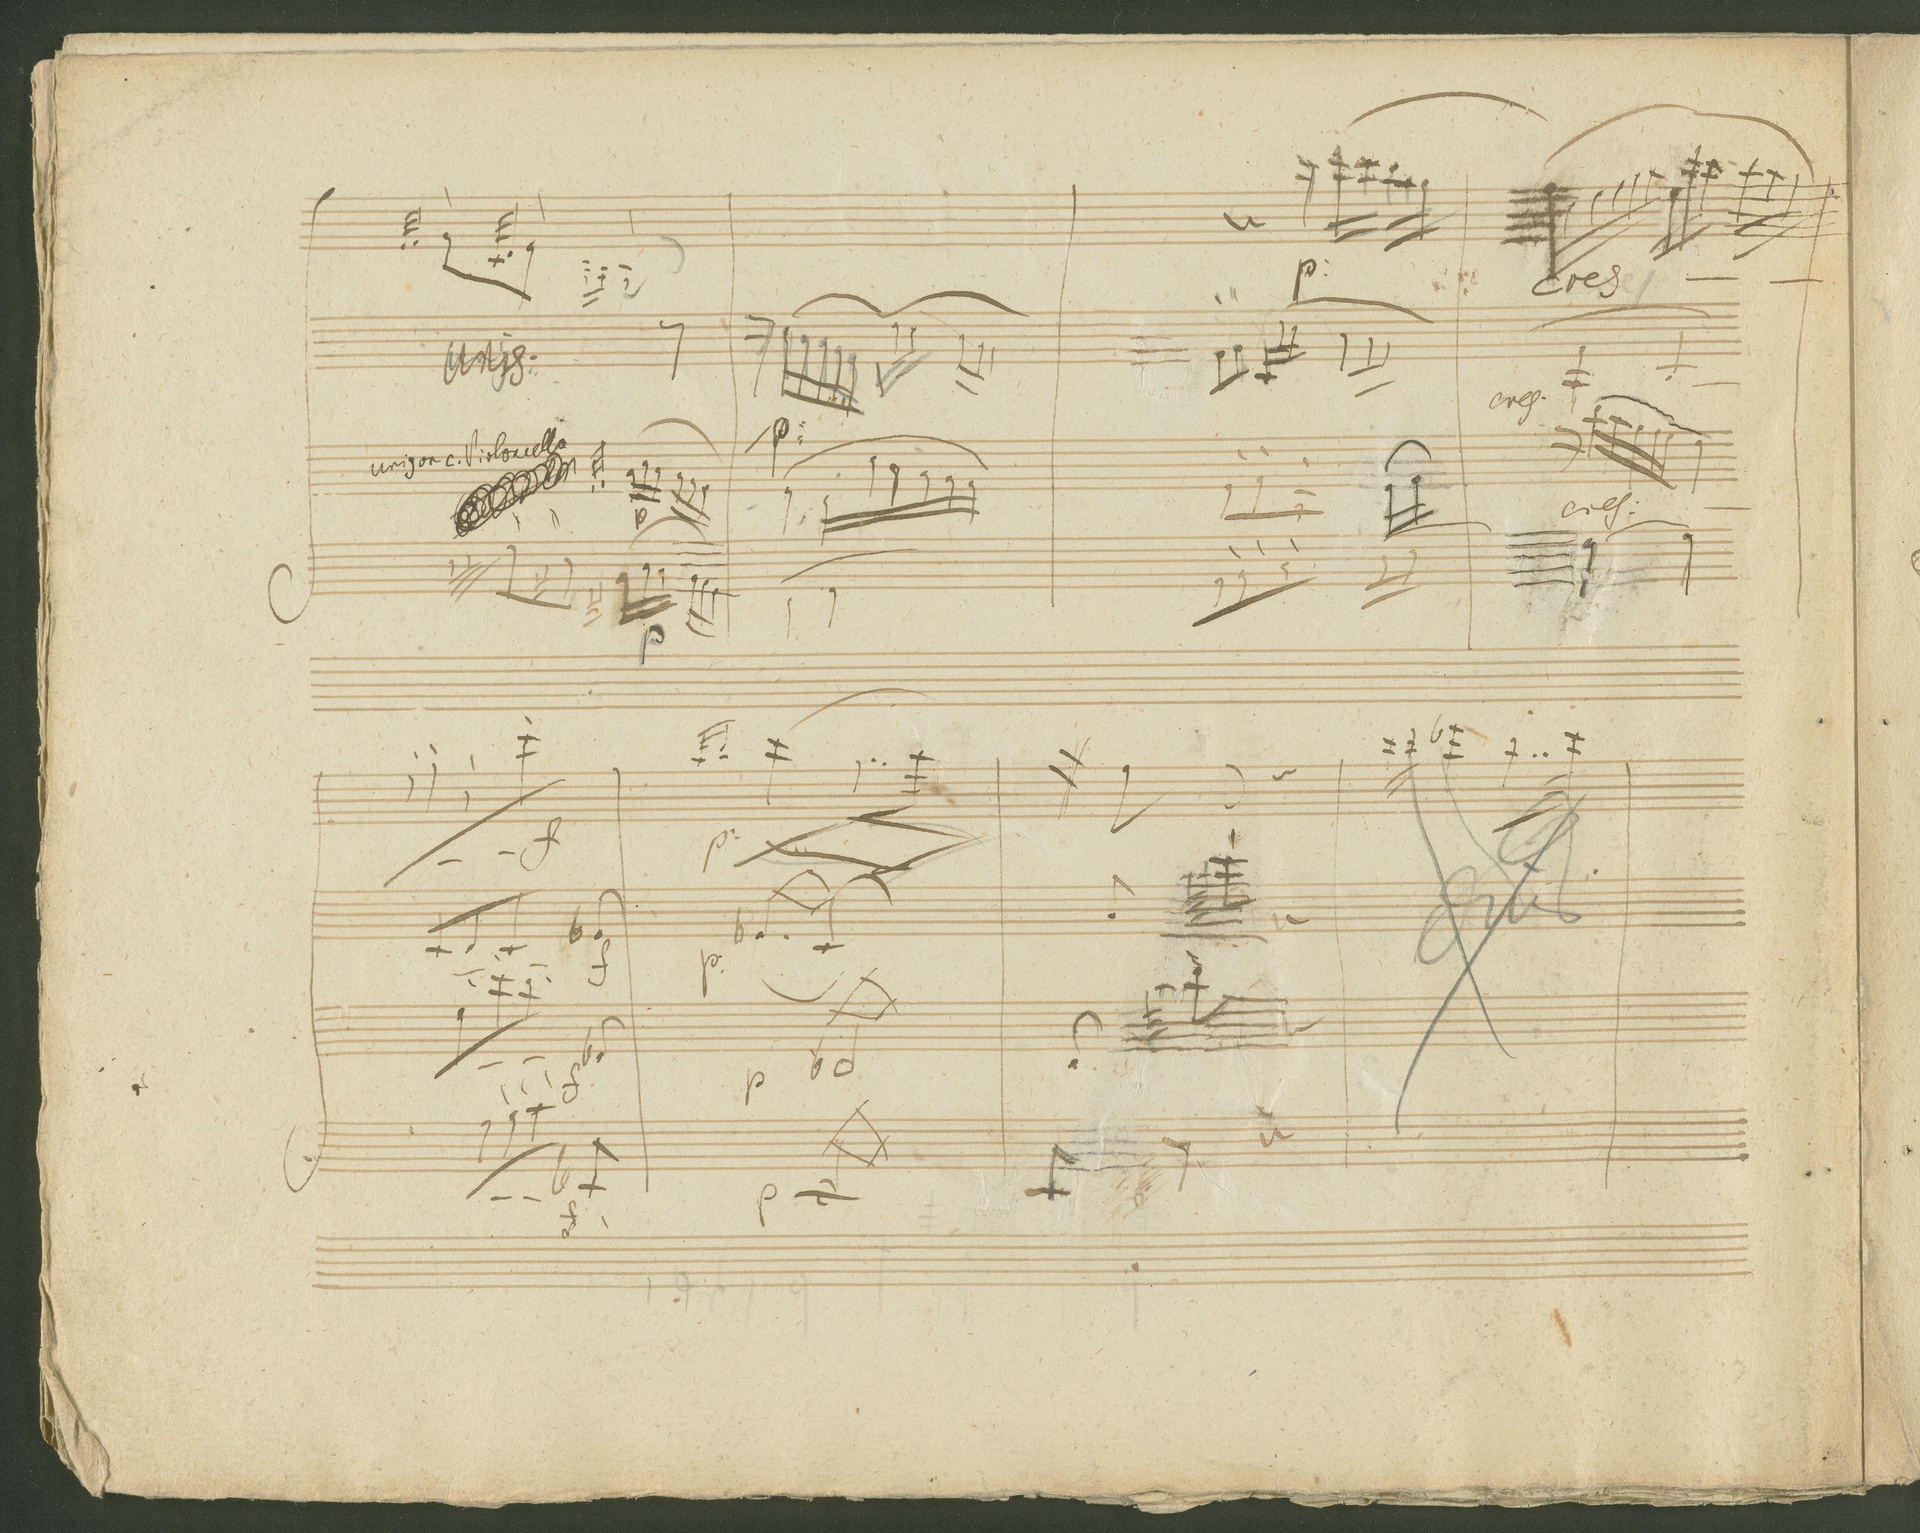 p:
cres
unis:
p:
cres:
unison c. Violoncello
cres:
p
f
p:
f
p:
f
p
sf
p